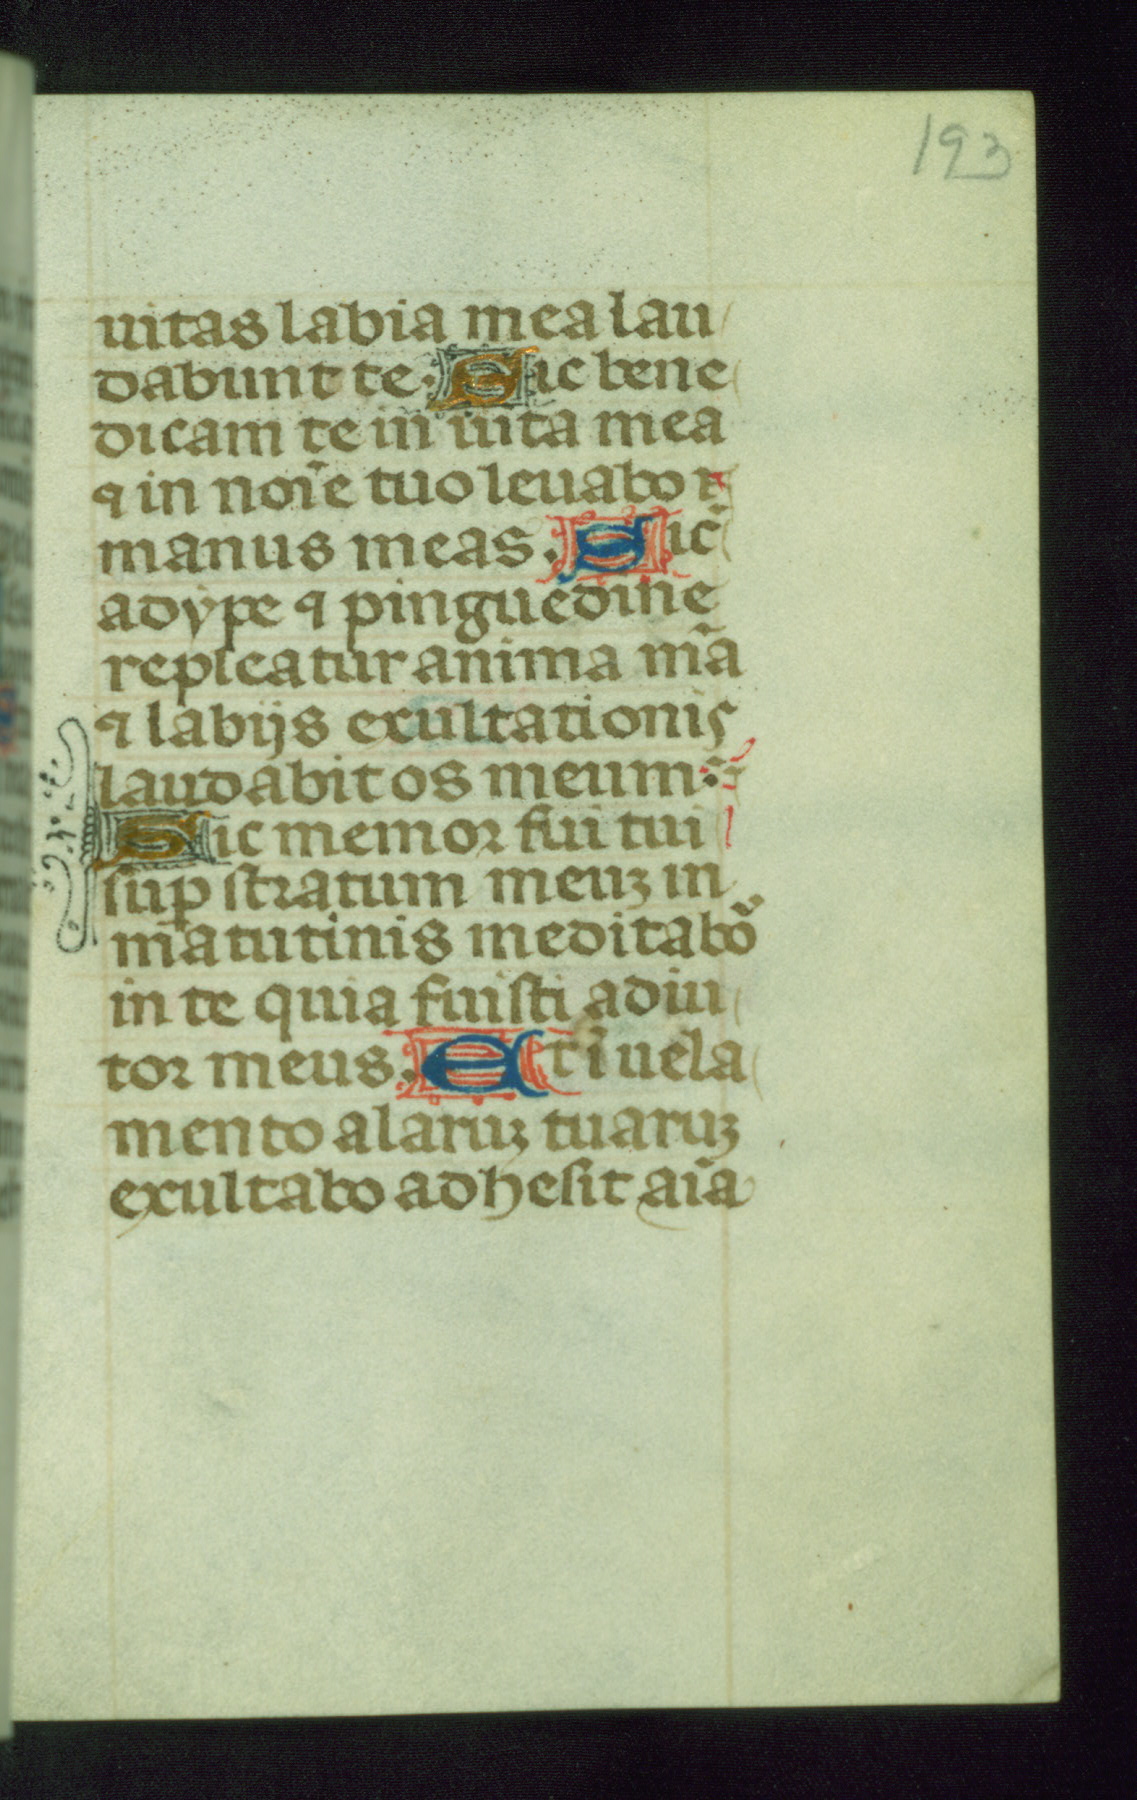 193
uitas labia mea lau
dabunt te. Sic bene
dicam te in uita mea
⁊ in noīe tuo leuabo
manus meas. Sic
adype ⁊ pinguedine
repleatur anima mā
⁊ labijs exultationis
laudabit os meum.
Sic memor fui tui
suꝑ stratum meuꝫ in
matutinis meditabor
in te quia fuisti adiu
tor meus. Et ī uela
mento alaruꝫ tuaruꝫ
exultabo adhesit aīa